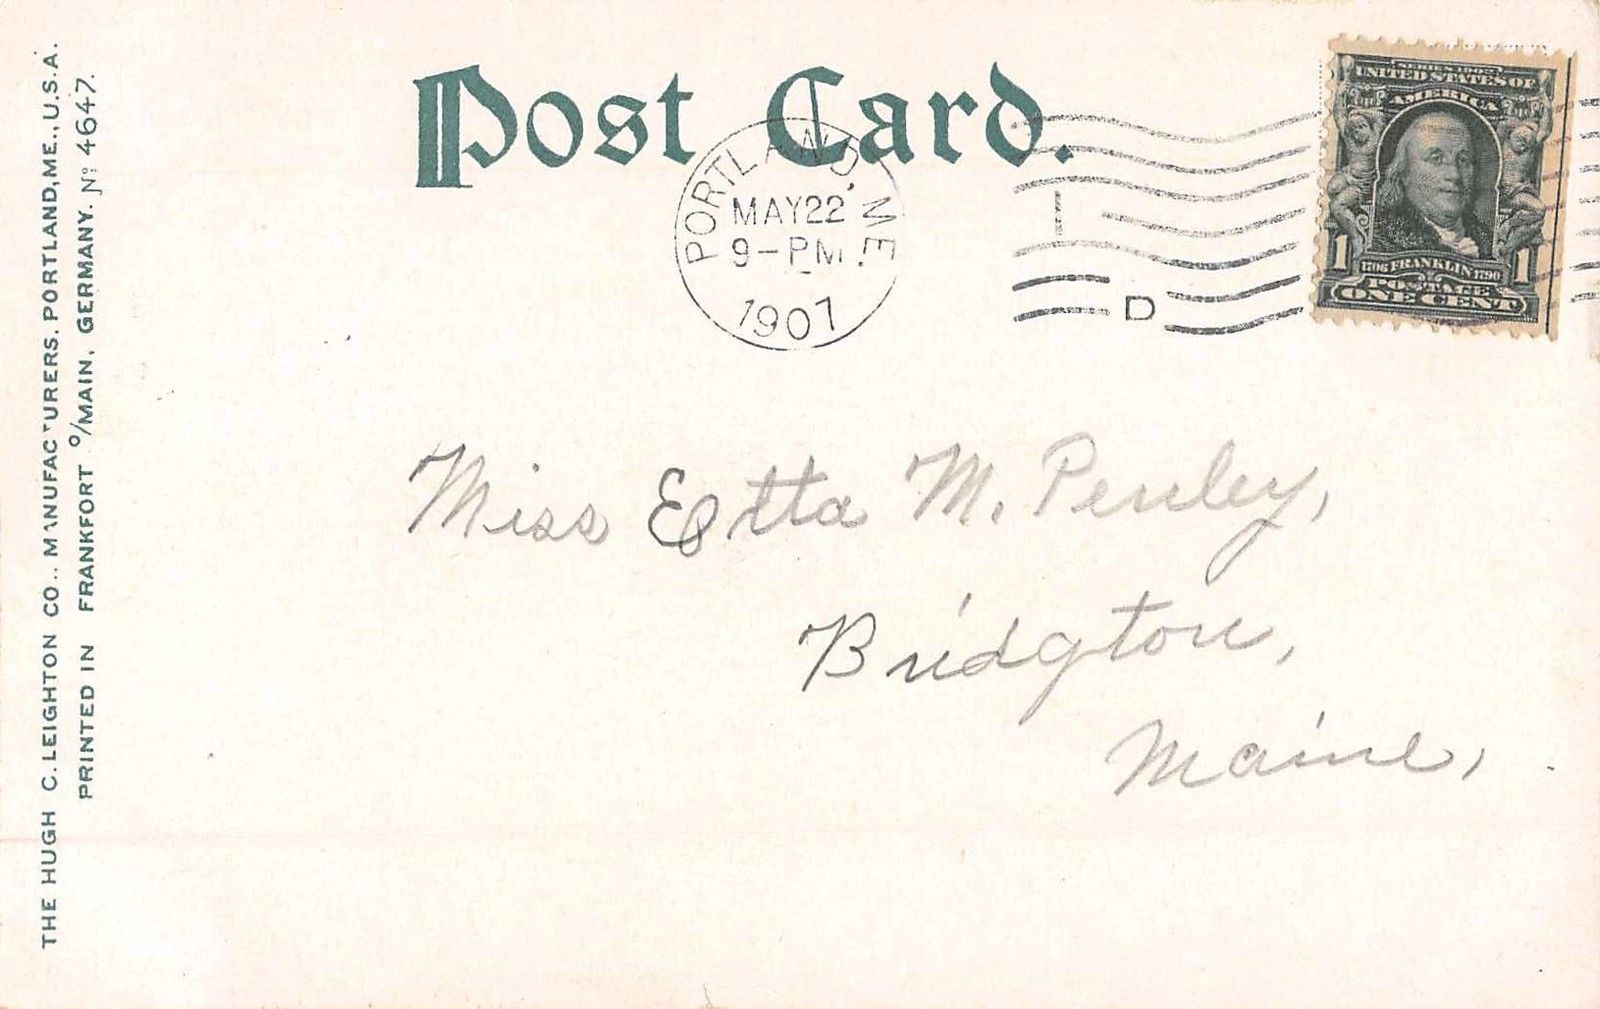 THE HUGH C. LEIGHTON CO., MANUFACTURERS, PORTLAND, ME., U.S.A.
PRINTED IN FRANKFORT o/MAIN, GERMANY. No 4647.
Post Card.
PORTLAND, ME.
MAY 22
9-PM
1907
I
D
SERIES 1902
UNITED STATES OF
AMERICA
1 1706 FRANKLIN 1790 1
POSTAGE
ONE CENT
Miss Etta M. Penley,
Bridgton,
Maine,